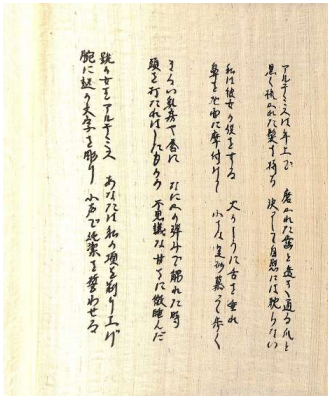 アルテミスは年上で 磨かれた歯と透き通る爪と
黒く梳かれた髪を持ち 決して自慰には耽らない
私は彼女の をする 犬のように舌を垂れ
鼻を地面に摩付けて 小さな足跡慕って歩く
まるい乳房 なにかの弾みで触れた時
頭を打たれはしたものの 不思議な甘さに微睡んだ
跣の女王アルテミス あなたは私の項を剃り上げ
腕に の文字を彫り 小声で純潔を誓わせる